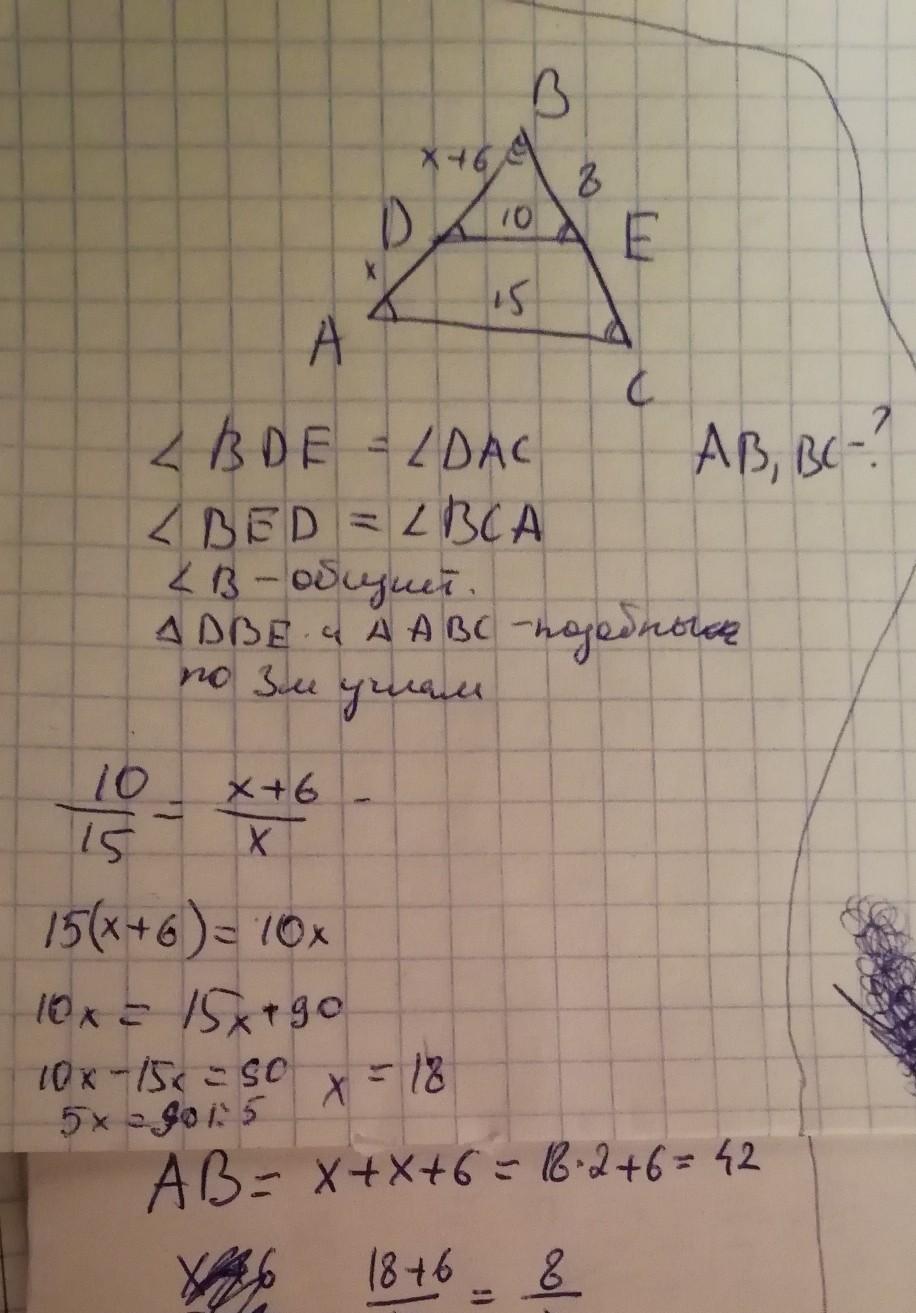 B
x+6
8
D
10
E
x
15
A
C
∠ BDE = ∠DAC AB, BC-?
∠ BED = ∠BCA
∠ B – общий.
Δ DBE и Δ ABC – подобные
по 3м углам
10/15 = (x+6)/x -
15(x+6) = 10x
10x = 15x+90
10x-15x = 90 x = 18
5x = 90 |: 5
AB = x+x+6 = 18·2+6 = 42
18+6 = 8